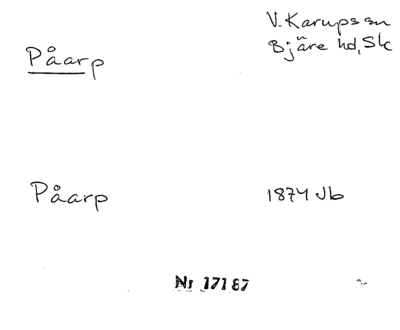 Påarp
V. Karups sn
Bjäre hd, Sk
Påarp
1874 Jb
Nr 17187